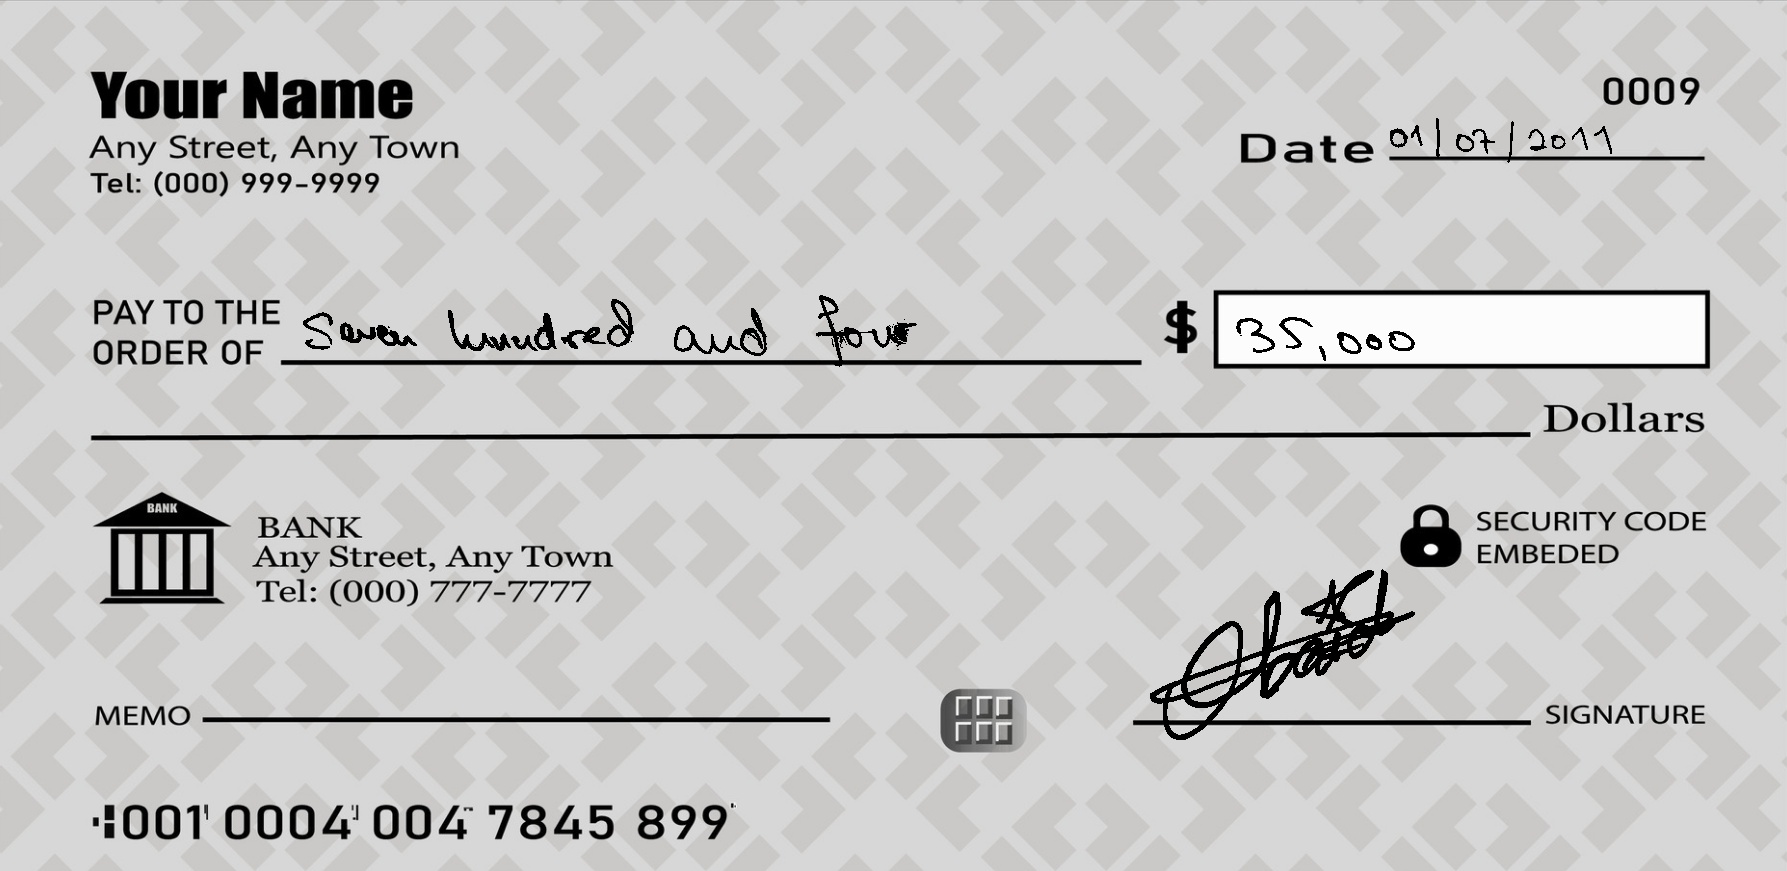 Your Name
0009
Any Street, Any Town
Date 01/07/2011
Tel: (000) 999-9999
PAY TO THE
ORDER OF Seven hundred and four $ 35,000
Dollars
BANK
BANK
Any Street, Any Town
Tel: (000) 777-7777
SECURITY CODE
EMBEDED
MEMO
SIGNATURE
001 0004 004 7845 899